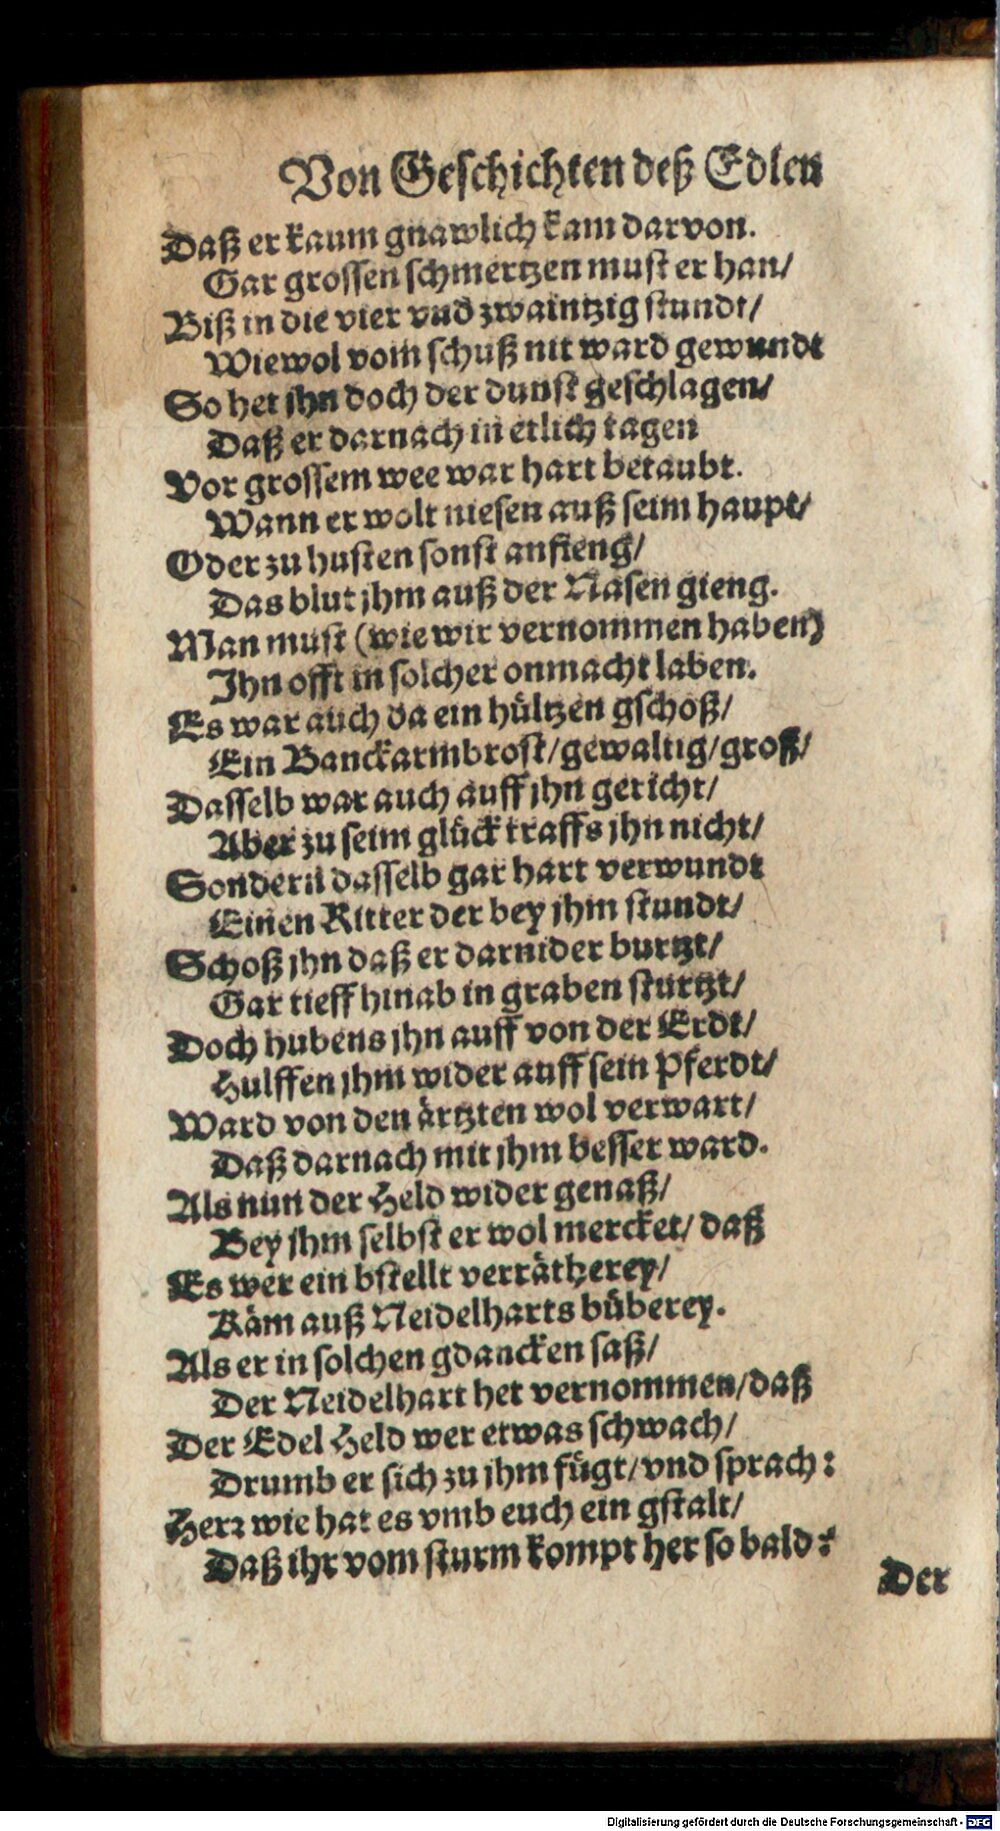 Von Geschichten deß Edlen
Daß er kaum gnawlich kam darvon.
Gar grossen schmertzen must er han/
Biß in die vier vnd zwaintzig stundt/
Wiewol vom schuß nit ward gewundt
So het jhn doch der dunst geschlagen/
Daß er darnach in etlich tagen
Vor grossem wee war hart betaubt.
Wann er wolt niesen auß seim haupt/
Oder zu husten sonst anfieng/
Das blut jhm auß der Nasen gieng.
Man must (wie wir vernommen haben)
Jhn offt in solcher onmacht laben.
Es war auch da ein hültzen gschoß/
Ein Banckarmbrost/gewaltig/groß/
Dasselb war auch auff jhn gericht/
Aber zu seim glück traffs jhn nicht/
Sondern dasselb gar hart verwundt
Einen Ritter der bey jhm stundt/
Schoß jhn daß er darnider burtzt/
Gar tieff hinab in graben sturtzt/
Doch hubens jhn auff von der Erdt/
Hulffen jhm wider auff sein Pferdt/
Ward von den ärtzten wol verwart/
Daß darnach mit jhm besser ward.
Als nun der Held wider genaß/
Bey jhm selbst er wol mercket/ daß
Es wer ein bstellt verrätherey/
Käm auß Neidelharts büberey.
Als er in solchen gdancken saß/
Der Neidelhart het vernommen/daß
Der Edel Held wer etwas schwach/
Drumb er sich zu jhm fügt/vnd sprach:
Herr wie hat es vmb euch ein gstalt/
Daß ihr vom sturm kompt her so bald?
Der
Digitalisierung gefördert durch die Deutsche Forschungsgemeinschaft - DFG